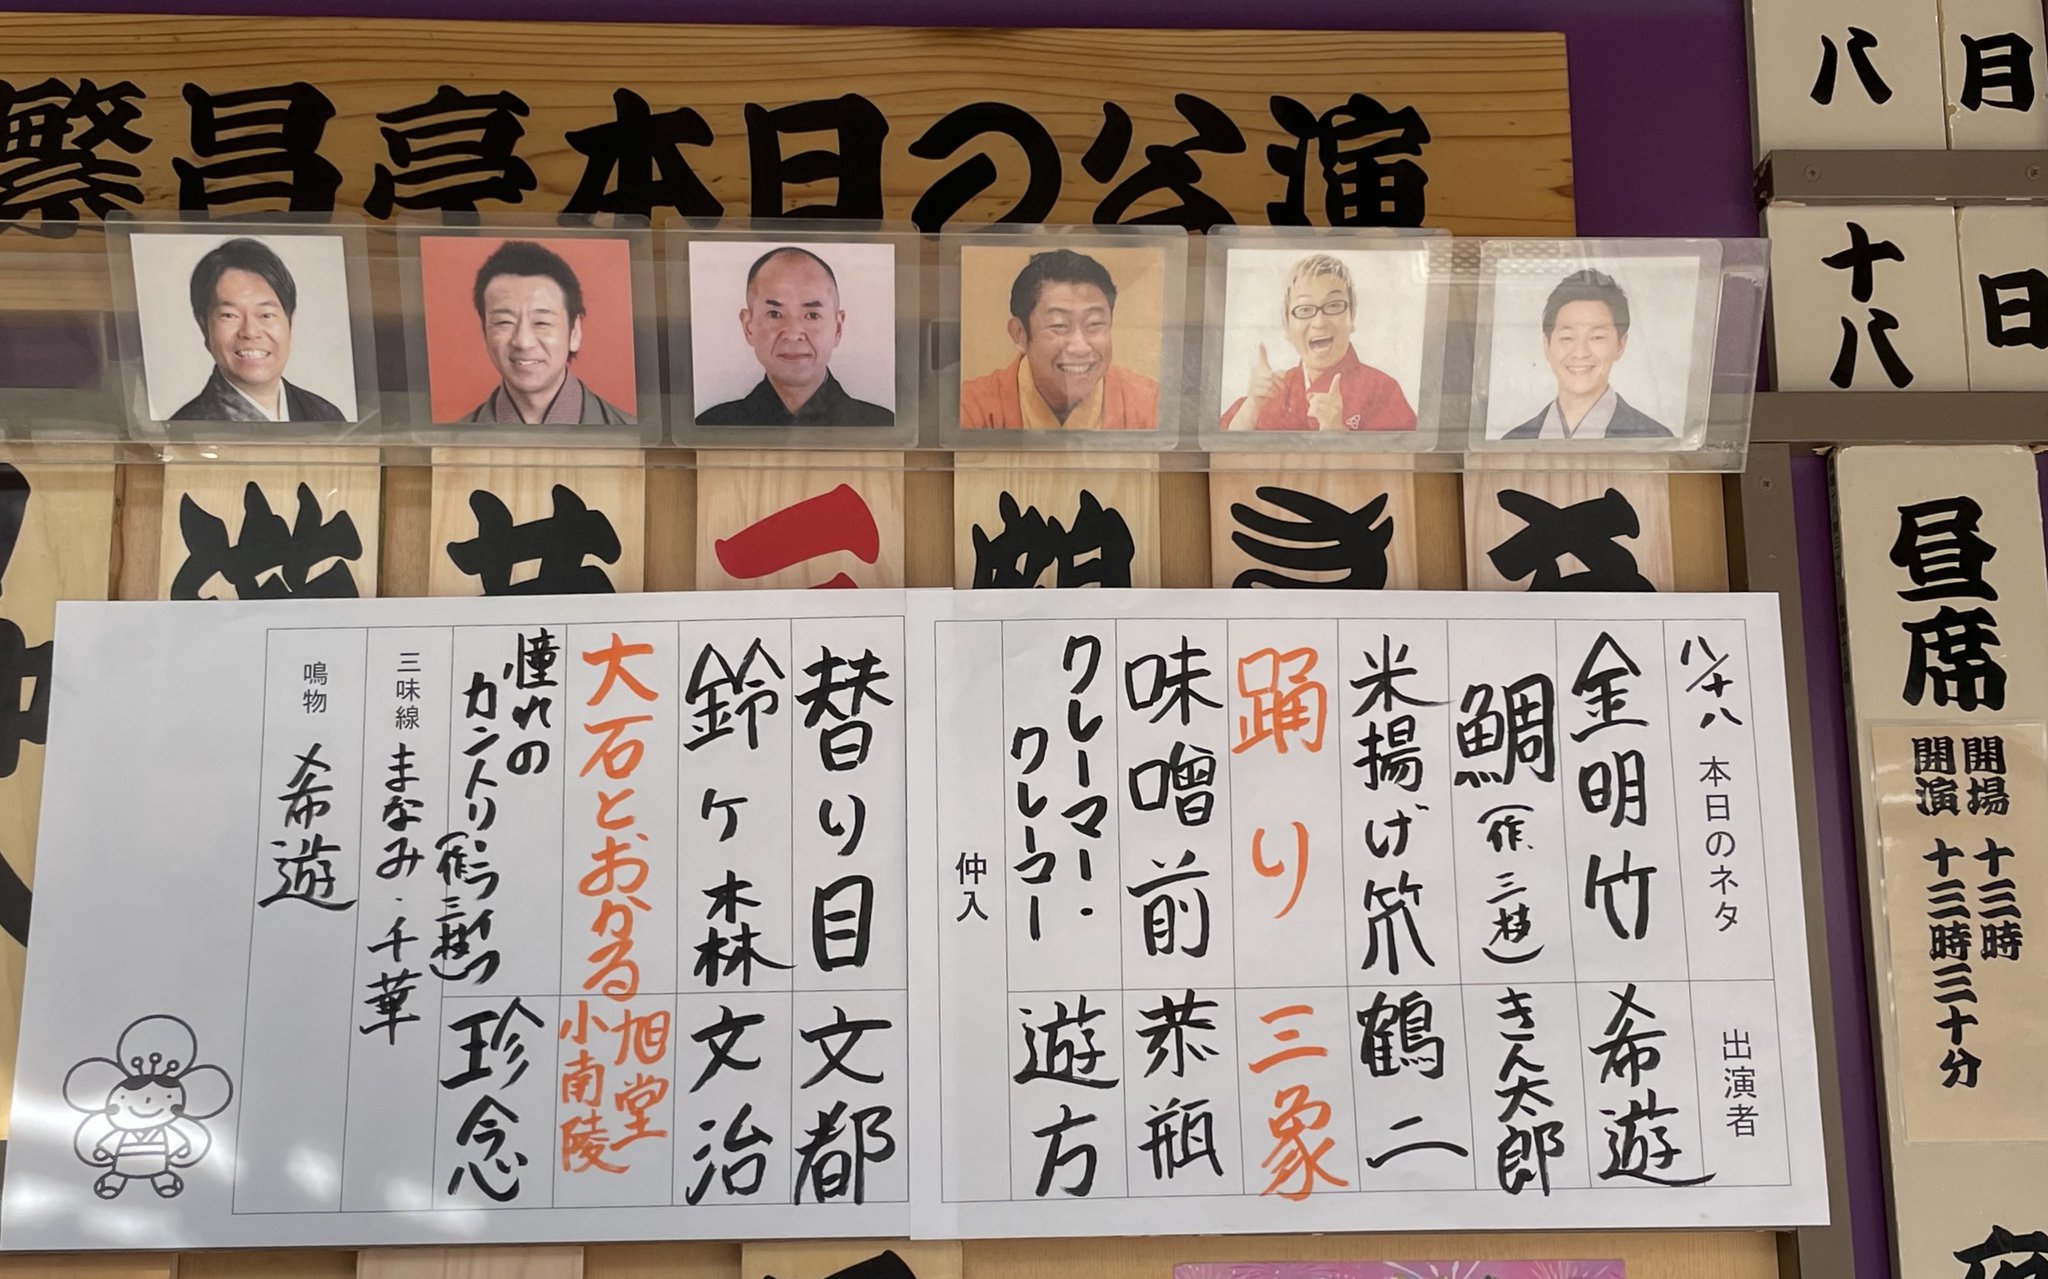 繁昌亭本日の公演
八月
十八日
昼席
開場 十三時
開演 十三時三十分
八/十八 本日のネタ 出演者
金明竹 希遊
鯛(作、三枝) きん太郎
米揚げ笊 鶴二
踊り 三象
味噌前 恭瓶
クレーマー・クレーマー 遊方
仲入
替り目 文都
鈴ケ森 文治
大石とおかる 旭堂小南陵
憧れのカントリーライフ(作、三枝) 珍念
三味線 まなみ・千華
鳴物 希遊